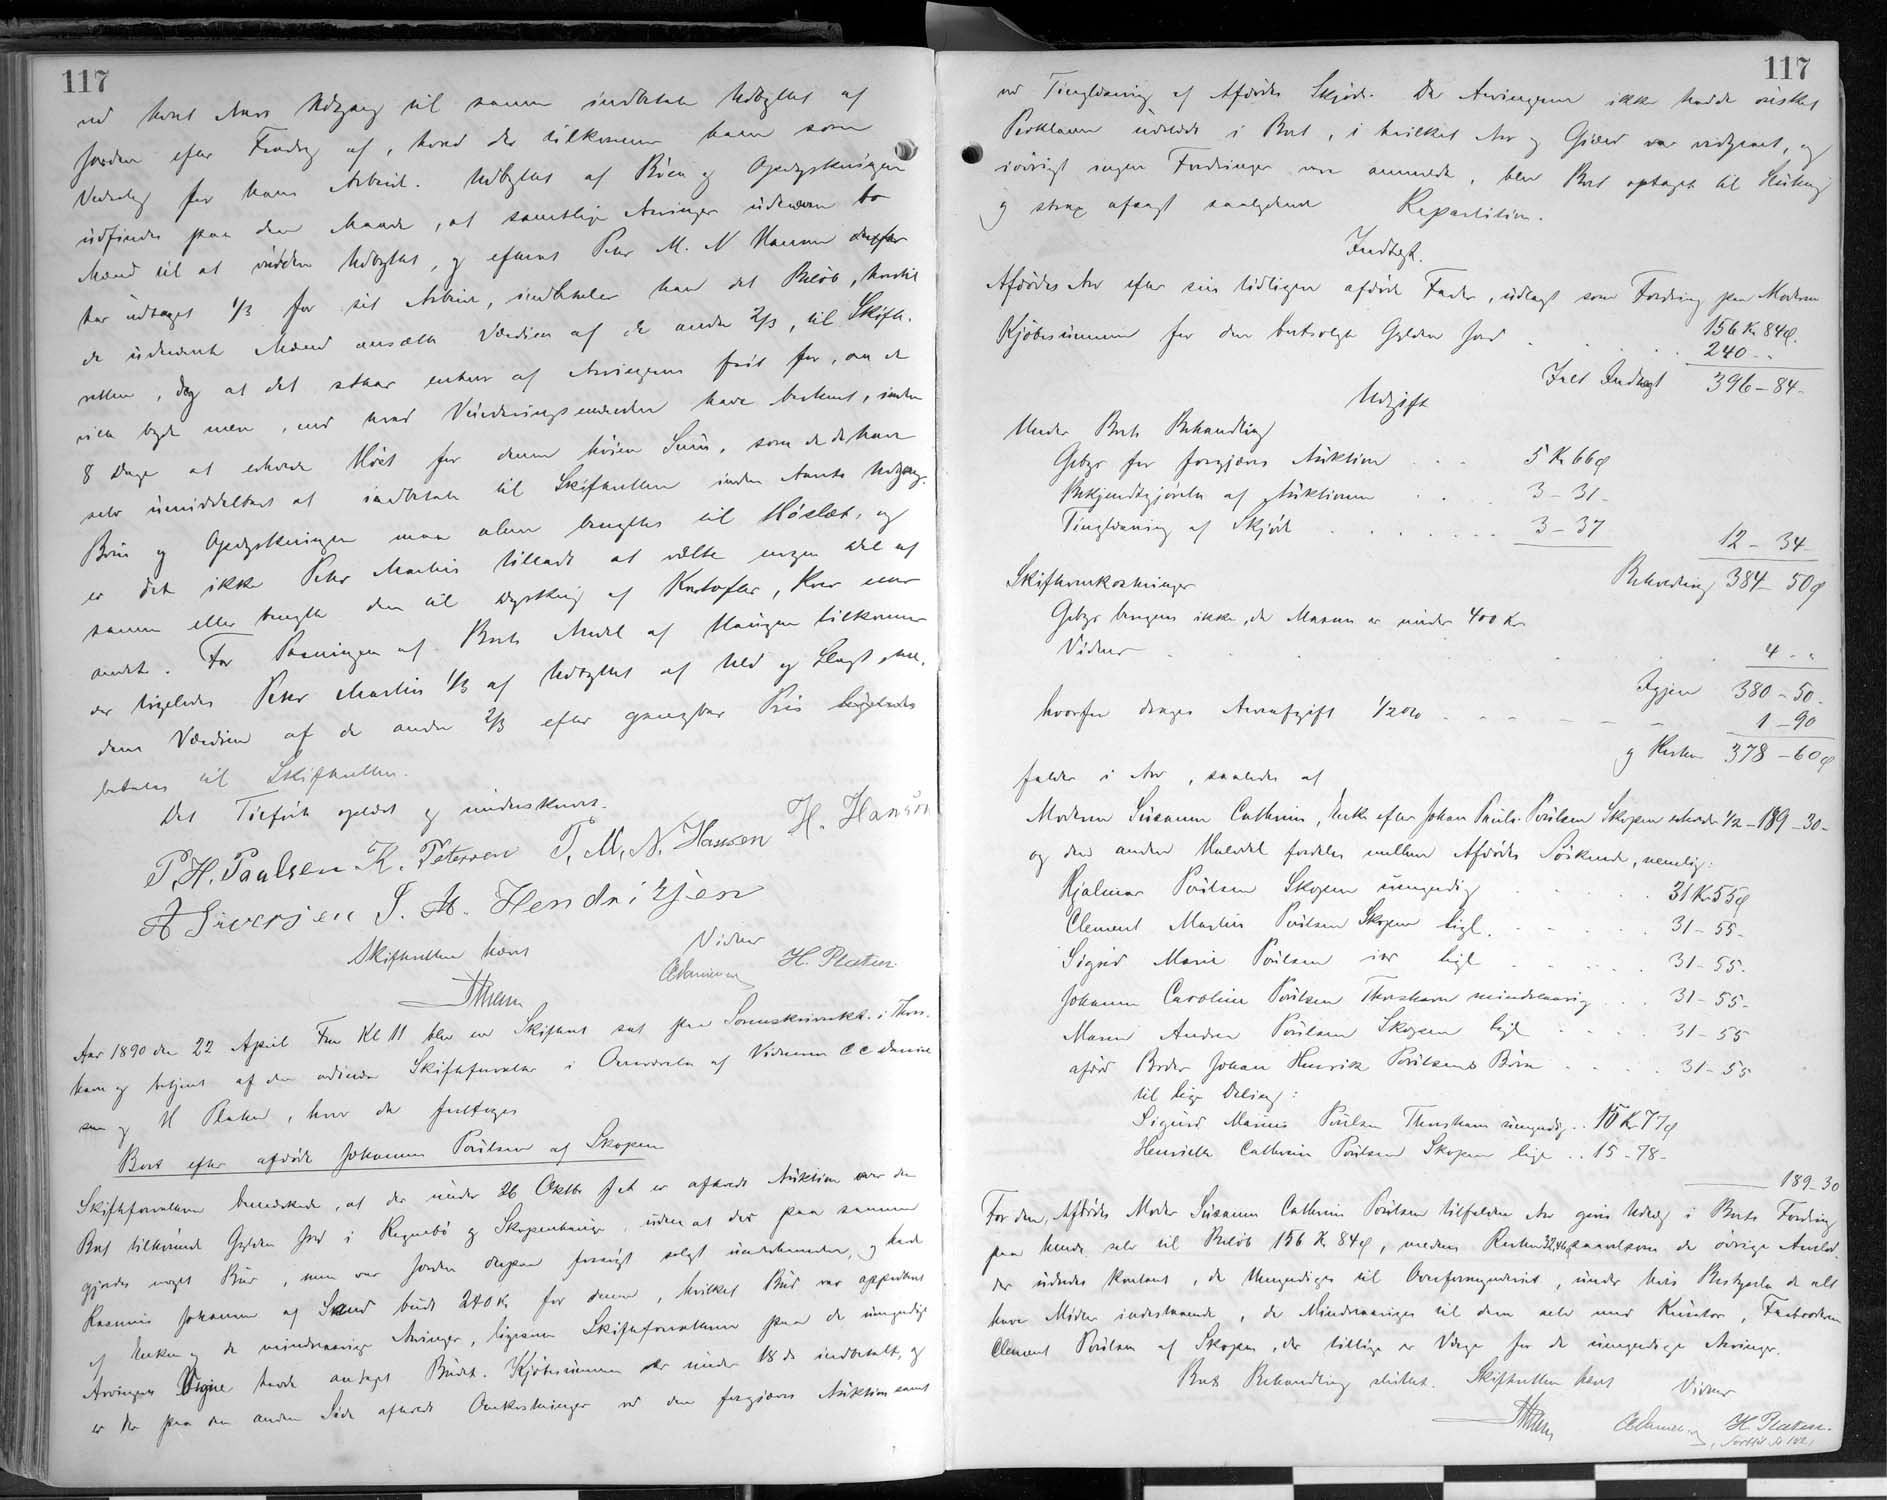 117
ved hvert Aars Udgang til samme indbetale Udbyttet af
Jorden efter Fradrag af, hvad der tilkommer ham som
Vederlag for hans Arbeid. Udbyttet af Böen og Opdyrkningen
udfindes paa den Maade, at samtlige Arvinger udnævne to
Mænd til at vurdere Udbyttet, og efterat Peter M. N Hansen derfor
har udtaget 1/3 for sit Arbeide, indbetaler han det Beløb, hvortil
de udnævnte Mænd ansætte Værdien af de andre 2/3, til Skifte-
retten, dog at det staar enhver af Arvingerne frit for, om de
ville byde mere, end hvad Vurderingsmændene have bestemt, inden
8 Dage at erholde Höet for denne höiere Sum, som de da have
selv umiddelbart at indbetale til Skifteretten inden Aarets Udgang.
Böen og Opdyrkningen maa alene benyttes til Höslæt, og
er det ikke Peter Martin tilladt at vælte nogen Del af
samme eller benytte den til Dyrkning af Kartofler, Korn eller
andet. For Pasningen af Boets Andel af Haugen tilkommer
der ligeledes Peter Martin 1/3 af Udbyttet af Uld og Slagt, me-
dens Værdien af de andre 2/3 efter gangbar Pris ligeledes
betales til Skifteretten.
Det Tilførte oplæst og underskrevet.
P. H. Paulsen K. Petersen P. M. N. Hansen H. Hansen
A Siversjen S. M. Hendriksen
Skifteretten hævet
Vidner
CDanielsen H. Platen
Aar 1890 den 22 April Fm Kl 11 blev en Skifteret sat paa Sorenskriverktt. i Thors-
havn og betjent af den ordinære Skifteforvalter i Overværelse af Vidnerne C C Daniel
sen og H Platen, hvor da foretoges
Boet efter afdøde Johannes Poulsen af Skopen
Skifteforvalteren bemærkede, at der under 26 Oktbr f. A. er afholdt Auktion over den
Boet tilhørende Gylden Jord i Regnebö og Skopenhauge, uden at der paa samme
gjordes noget Bud, men var Jorden derpaa forsøgt solgt underhaanden, og havde
Rasmus Johannesen af Sand budt 240 Kr for denne, hvilket Bud var approberet
af Enken og de mindreaarige Arvinger, ligesom Skifteforvalteren paa de umyndige
Arvingers Vegne havde antaget Budet. Kjøbesummen er under 18 ds indbetalt, og
er der paa den anden Side afholdt Omkostninger ved den forgjæves Auktion samt
117
ved Tinglæsning af Afdødes Skjøde. Da Arvingerne ikke havde ønsket
Proklama udstedt i Boet, i hvilket Arv og Gjæld var vedgaaet, og
iøvrigt ingen Fordringer vare anmeldte, blev Boet optaget til Slutning
og strax afsagt saalydende Repartition.
Indtægt.
Afdødes Arv efter sin tidligere afdøde Fader, udlagt som Fordring paa Moderen 156 Kr 84 Ø.
Kjøbesummen for den bortsolgte Gylden Jord 240 - "
Ialt Indtægt 396 - 84 -
Udgift
Under Boets Behandling
Gebyr for forgjæves Auktion 5 Kr 66 Ø
Bekjendtgjørelse af Auktionen 3 - 31 -
Tinglæsning af Skjøde 3 - 37 12 - 34 -
Beholdning 384 - 50 Ø
Skifteomkostninger
Gebyr beregnes ikke, da Massen er under 400 Kr
Vidner 4 - "
Igjen 380 - 50 -
hvorfra drages Arveafgift 1/2 % 1 - 90
og Resten 378 - 60 Ø
falder i Arv, saaledes at
Moderen Susanne Cathrine, Enke efter Johan Pauli Poulsen Skopen erholder 1/2 - 189 - 30 -
og den anden Halvdel fordeles mellem Afdødes Søskende, nemlig:
Hjalmar Poulsen Skopen umyndig 31 Kr 55 Ø
Clement Martin Poulsen Skopen ligl. 31 - 55 -
Sigrid Marie Poulsen ibd ligl 31 - 55 -
Johanne Caroline Poulsen Thorshavn mindreaarig 31 - 55 -
Maren Andrea Poulsen Skopen ligl 31 - 55
afdød Broder Johan Henrik Poulsens Børn 31 - 55
til lige Deling:
Sigurd Marius Poulsen Thorshavn umyndig .. 15 Kr 77 Ø
Henriette Cathrine Poulsen Skopen lige .. 15 - 78 -
189 - 30
For den, Afdødes Moder Susanne Cathrine Poulsen tilfaldne Arv gives Udlæg i Boets Fordring
paa hende selv til Beløb 156 Kr 84 Ø, medens Resten 32,46 Ø saavelsom de øvrige Arvelod-
der udredes kontant, de Umyndiges til Overformynderiet, under hvis Bestyrelse de alt
have Midler indestaaende, de Mindreaariges til dem selv med Kurator, Farbroderen
Clement Poulsen af Skopen, der tillige er Værge for de umyndige Arvinger.
Boets Behandling sluttet. Skifteretten hævet
Vidner
CDanielsen H. Platen.